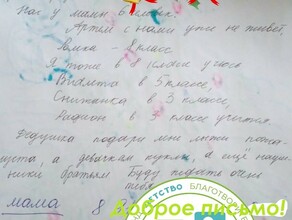 Нас у мамы 6 человек.
Артём с нами уже не живёт,
Ромка - 8 класс,
Я тоже в 8 классе учусь
Виолета в 5 классе,
Снежанка в 3 классе,
Родион в 1 классе учится.
Дедушка подари мне лыжи пожа-
луста, а девочкам куклы, а ещё науш-
ники братьям. Буду ждать очень
тебя
мама 8
ЕТСТВО БЛАГОТВОР
Доброе письмо!